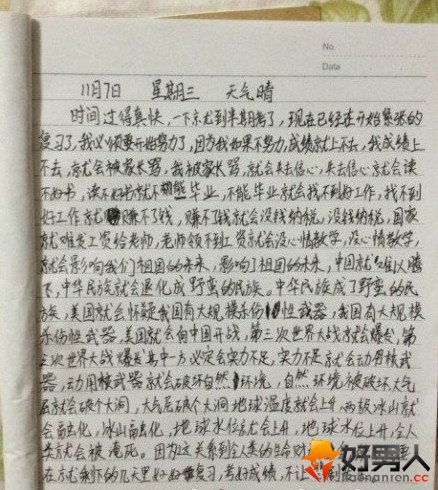 No.
Data
11月7日 星期三 天气晴
时间过得真快，一下京尤到半期考了，现在已经在开始紧张的
复习了，我必须要开始努力了，因为我如果不努力，成绩就上不去，我成绩上
不去，就会被家长骂，我被家长骂，就会失去信心，失去信心就会读
不好书，读不好书就不能毕业，不能毕业就会找不到好工作，找不到
好工作就赚不了钱，赚不了钱就会没钱纳税，没钱纳税，国家
就难发工资给老师，老师领不到工资就会没心情教学，没心情教学，
就会影响我们祖国的未来，影响了祖国的未来，中国就难以腾
飞，中华民族就会退化成野蛮的民族。中华民族成了野蛮的民
族，美国就会怀疑我国有大规模杀伤性武器，我国有大规模
杀伤性武器，美国就会向中国开战，第三次世界大战就会爆发，第
三次世界大战爆发其中一方必定会实力不足，实力不足就会动用核武
器，动用核武器就会破坏自然环境，自然环境被破坏大气
层就会破个大洞，大气层破个大洞地球温度就会上升，两极冰山就
会融化，冰山融化，地球水位就会上升，地球水位上升，全人
类就会被淹死。因为这关系到全人类的生命财
在京尤剩下的几天里好好复习，考好成绩，不让
好男人
nanrencn.cc